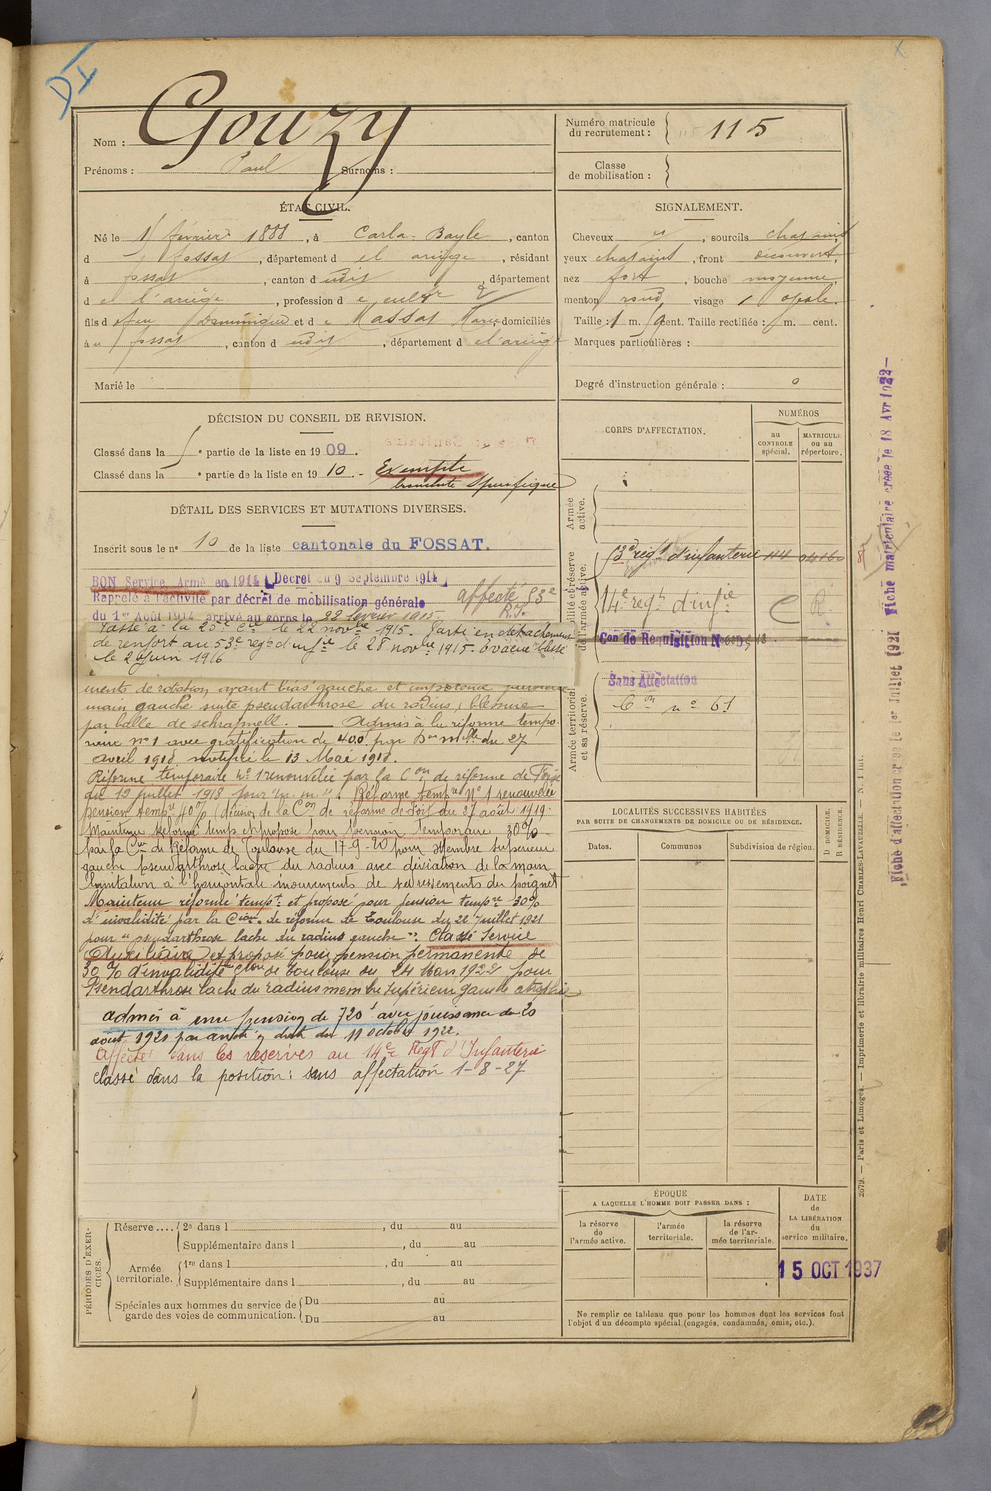 DI
Nom : Gouzy
Prénoms : Paul Surnoms :
Numéro matricule
du recrutement : 115
Classe
de mobilisation :
ÉTAT CIVIL.
Né le 1 février 1888, à Carla-Bayle, canton
d Fossat, département d el ariège, résidant
à fossat, canton d udit, département
d e l'ariège, profession d e cultr
fils d efeu Dominique et d e Massat Marie domiciliés
à u fossat, canton d udit, département d el'ariège
Marié le
SIGNALEMENT.
Cheveux, sourcils chatains
yeux chatains, front découvert,
nez fort, bouche moyenne
menton rond, visage ovale.
Taille : 1 m. cent. Taille rectifiée : m. cent.
Marques particulières :
Degré d'instruction générale : 0
DÉCISION DU CONSEIL DE REVISION.
Classé dans la partie de la liste en 1909.
Classé dans la partie de la liste en 1910. - Exempté
bronchite spécifique
DÉTAIL DES SERVICES ET MUTATIONS DIVERSES.
Inscrit sous le n° 10 de la liste cantonale du FOSSAT.
BON Service Armé en 1914 Décret du 9 Septembre 1914
Rappelé à l'activité par décret de mobilisation générale
affecté 53e
R.I.
du 1er Août 1914 arrivé au corps le 22 février 1915.
Passé à la 25e Cie le 22 novbre 1915. Parti en détachement
de renfort au 53e regt d'infie le 28 novbre 1915. évacué blessé
le 26 juin 1916
ments de rotation avant bras gauche et
main gauche suite pseudarthrose du radius, blessure
par balle de schrapnell. — Admis à la réforme tempo-
raire n° 1 avec gratification de 400f par Don mlle du 27
avril 1918 notifiée le 13 Mai 1918.
Réforme temporaire n° 1 renouvelée par la Con de réforme de Foix
du 12 juillet 1918 pour "m. m.". Réforme tempre N° 1 renouvelée
pension tempre 40% décision de la Con de réforme de Foix du 27 août 1919.
Maintenu réformé temp. et proposé pour pension temporaire 30%
par la Con de Réforme de Toulouse du 17-9-20 pour Membre supérieur
gauche pseudarthrose lache du radius avec déviation de la main
limitation à l'horizontale mouvements de redressements du poignet
Maintenu réformé tempre et proposé pour pension tempre 30%
d'invalidité par la Con de réforme de Toulouse du 22 Juillet 1921
pour "pseudarthrose lache du radius gauche". Classé Service
Auxiliaire et proposé pour pension permanente de
30% d'invalidité Con de Toulouse du 24 Mars 1922 pour
Pseudarthrose lache du radius membre supérieur gauche
admis à une pension de 720f avec jouissance du 20
août 1921 par en date du 11 octobre 1922.
Affecté dans les réserves au 14e Regt d'Infanterie
classé dans la position : sans affectation 1-8-27
CORPS D'AFFECTATION.
NUMÉROS
au
CONTROLE
spécial.
MATRICULE
ou au
répertoire.
Armée
active.
Disponibilité et réserve
de l'armée active.
53e regt d'infanterie
14e regt d'infie
Con de Réquisition N°
Armée territoriale
et sa réserve.
Sans Affectation
Con n° 61
LOCALITÉS SUCCESSIVES HABITÉES
PAR SUITE DE CHANGEMENTS DE DOMICILE OU DE RÉSIDENCE.
Dates.
Communes
Subdivision de région.
D DOMICILE.
R RÉSIDENCE.
ÉPOQUE
A LAQUELLE L'HOMME DOIT PASSER DANS :
la réserve
de
l'armée active.
l'armée
territoriale.
la réserve
de l'ar-
mée territoriale.
DATE
de
LA LIBÉRATION
du
service militaire.
15 OCT 1937
Ne remplir ce tableau que pour les hommes dont les services font
l'objet d'un décompte spécial (engagés, condamnés, omis, etc.).
PÉRIODES D'EXER-
CICES.
Réserve .... 2e dans l , du au
Supplémentaire dans l , du au
Armée
territoriale.
1re dans l , du au
Supplémentaire dans l , du au
Spéciales aux hommes du service de
garde des voies de communication.
Du au
Du au
2679. — Paris et Limoges. — Imprimerie et librairie militaires Henri CHARLES-LAVAUZELLE. — N. 1 int.
Fiche d'affectation créée le 1er Juillet 1921 Fiche matriculaire créée le 18 Avr 1922